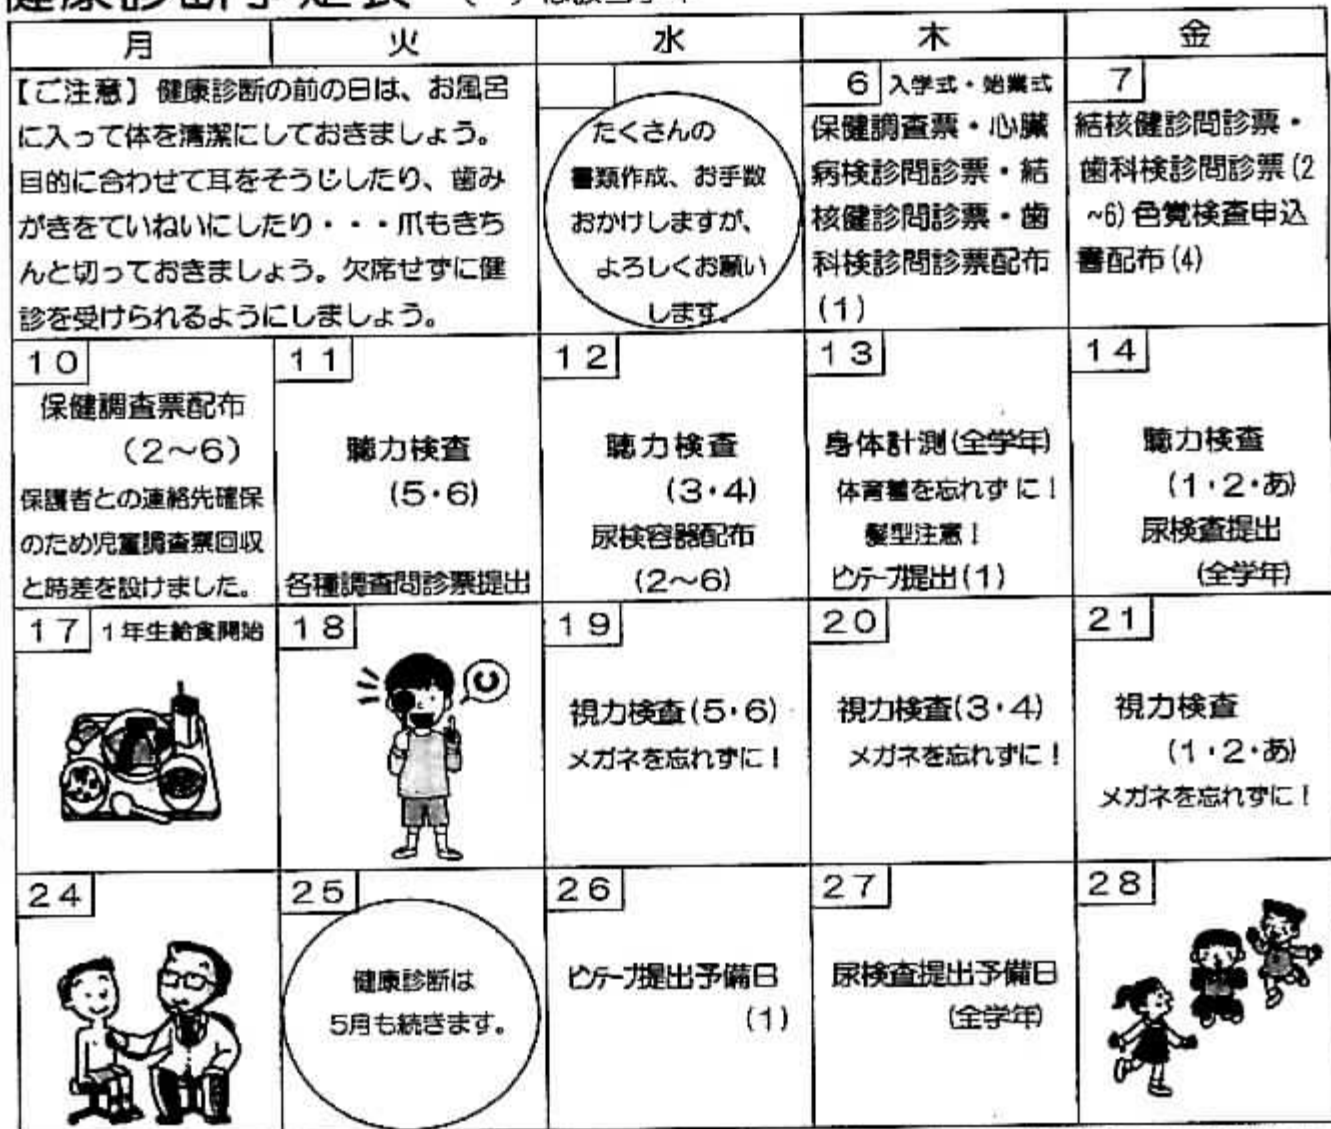 健康診断予定表
月 火 水 木 金
【ご注意】健康診断の前の日は、お風呂
に入って体を清潔にしておきましょう。
目的に合わせて耳をそうじしたり、歯み
がきをていねいにしたり・・・爪もきち
んと切っておきましょう。欠席せずに健
診を受けられるようにしましょう。
たくさんの
書類作成、お手数
おかけしますが、
よろしくお願い
します。
6 入学式・始業式
保健調査票・心臓
病検診問診票・結
核健診問診票・歯
科検診問診票配布
(1)
7
結核健診問診票・
歯科検診問診票(2
~6)色覚検査申込
書配布(4)
10
保健調査票配布
(2～6)
保護者との連絡先確保
のため児童調査票回収
と時差を設けました。
11
聴力検査
(5・6)
各種調査問診票提出
12
聴力検査
(3・4)
尿検容器配布
(2～6)
13
身体計測(全学年)
体育着を忘れずに！
髪型注意！
ピンテープ提出(1)
14
聴力検査
(1・2・あ)
尿検査提出
(全学年)
17 1年生給食開始
18
19
視力検査(5・6)
メガネを忘れずに！
20
視力検査(3・4)
メガネを忘れずに！
21
視力検査
(1・2・あ)
メガネを忘れずに！
24
25
健康診断は
5月も続きます。
26
ピンテープ提出予備日
(1)
27
尿検査提出予備日
(全学年)
28